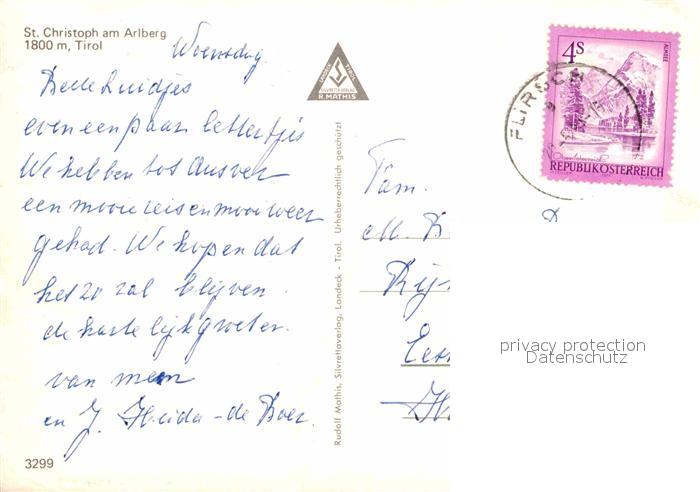 St. Christoph am Arlberg
1800 m, Tirol
Woensdag
Beste Luidjes
even een paar lettertjes
We hebben tot dusver
een mooie reis en mooi weer
gehad. We hopen dat
het zo zal blijven.
de hartelijke groeten.
van
en J. Heida - de Boer.
3299
R. MATHIS
Rudolf Mathis, Silvrettaverlag, Landeck - Tirol. Urheberrechtlich geschützt!
4S
ALMSEE
REPUBLIK ÖSTERREICH
FLIRSCH
Fam.
M. B
Rij
privacy protection
Datenschutz